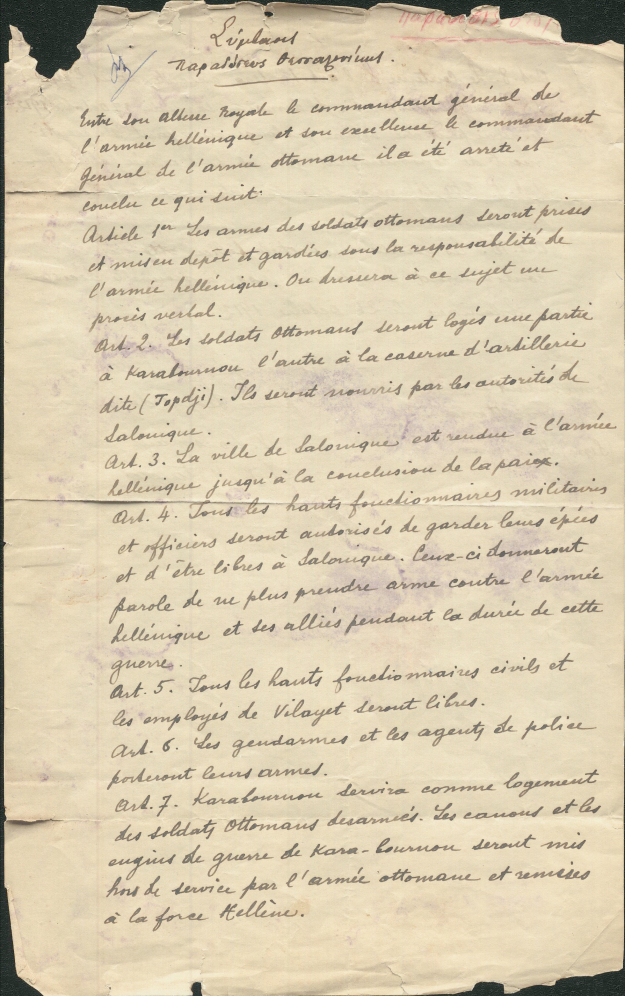 Σύμβασις
παραδόσεως Θεσσαλονίκης.
Entre son Altesse Royale le commandant général de
l'armée hellénique et son excellense le commandant
Général de l'armée ottomane il a été arreté et
conclu ce qui suit.
Article 1er Les armes des soldats ottomans seront prises
et mis en depôt et gardées sous la responsabilité de
l'armée hellénique. On dressera à ce sujet un
procès verbal.
Art. 2. Les soldats Ottomans seront logés une partie
à Karabournou l'autre à la caserne d'artillerie
dite (Topdji). Ils seront nourris par les autorités de
Salonique.
Art. 3. La ville de Salonique est rendue à l'armée
hellénique jusqu'à la conclusion de la paix.
Art. 4. Tous les hauts fonctionnaires militaires
et officiers seront autorisés de garder leurs épées
et d'être libres à Salonique. Ceux-ci donneront
parole de ne plus prendre arme contre l'armée
hellénique et ses alliés pendant la durée de cette
guerre.
Art. 5. Tous les hauts fonctionnaires civils et
les employés de Vilayet seront libres.
Art. 6. Les gendarmes et les agents de police
porteront leurs armes.
Art. 7. Karabournou servira comme logement
des soldats Ottomans desarmés. Les canons et les
engins de guerre de Kara-bournou seront mis
hors de service par l'armée ottomane et remises
à la force Hellène.